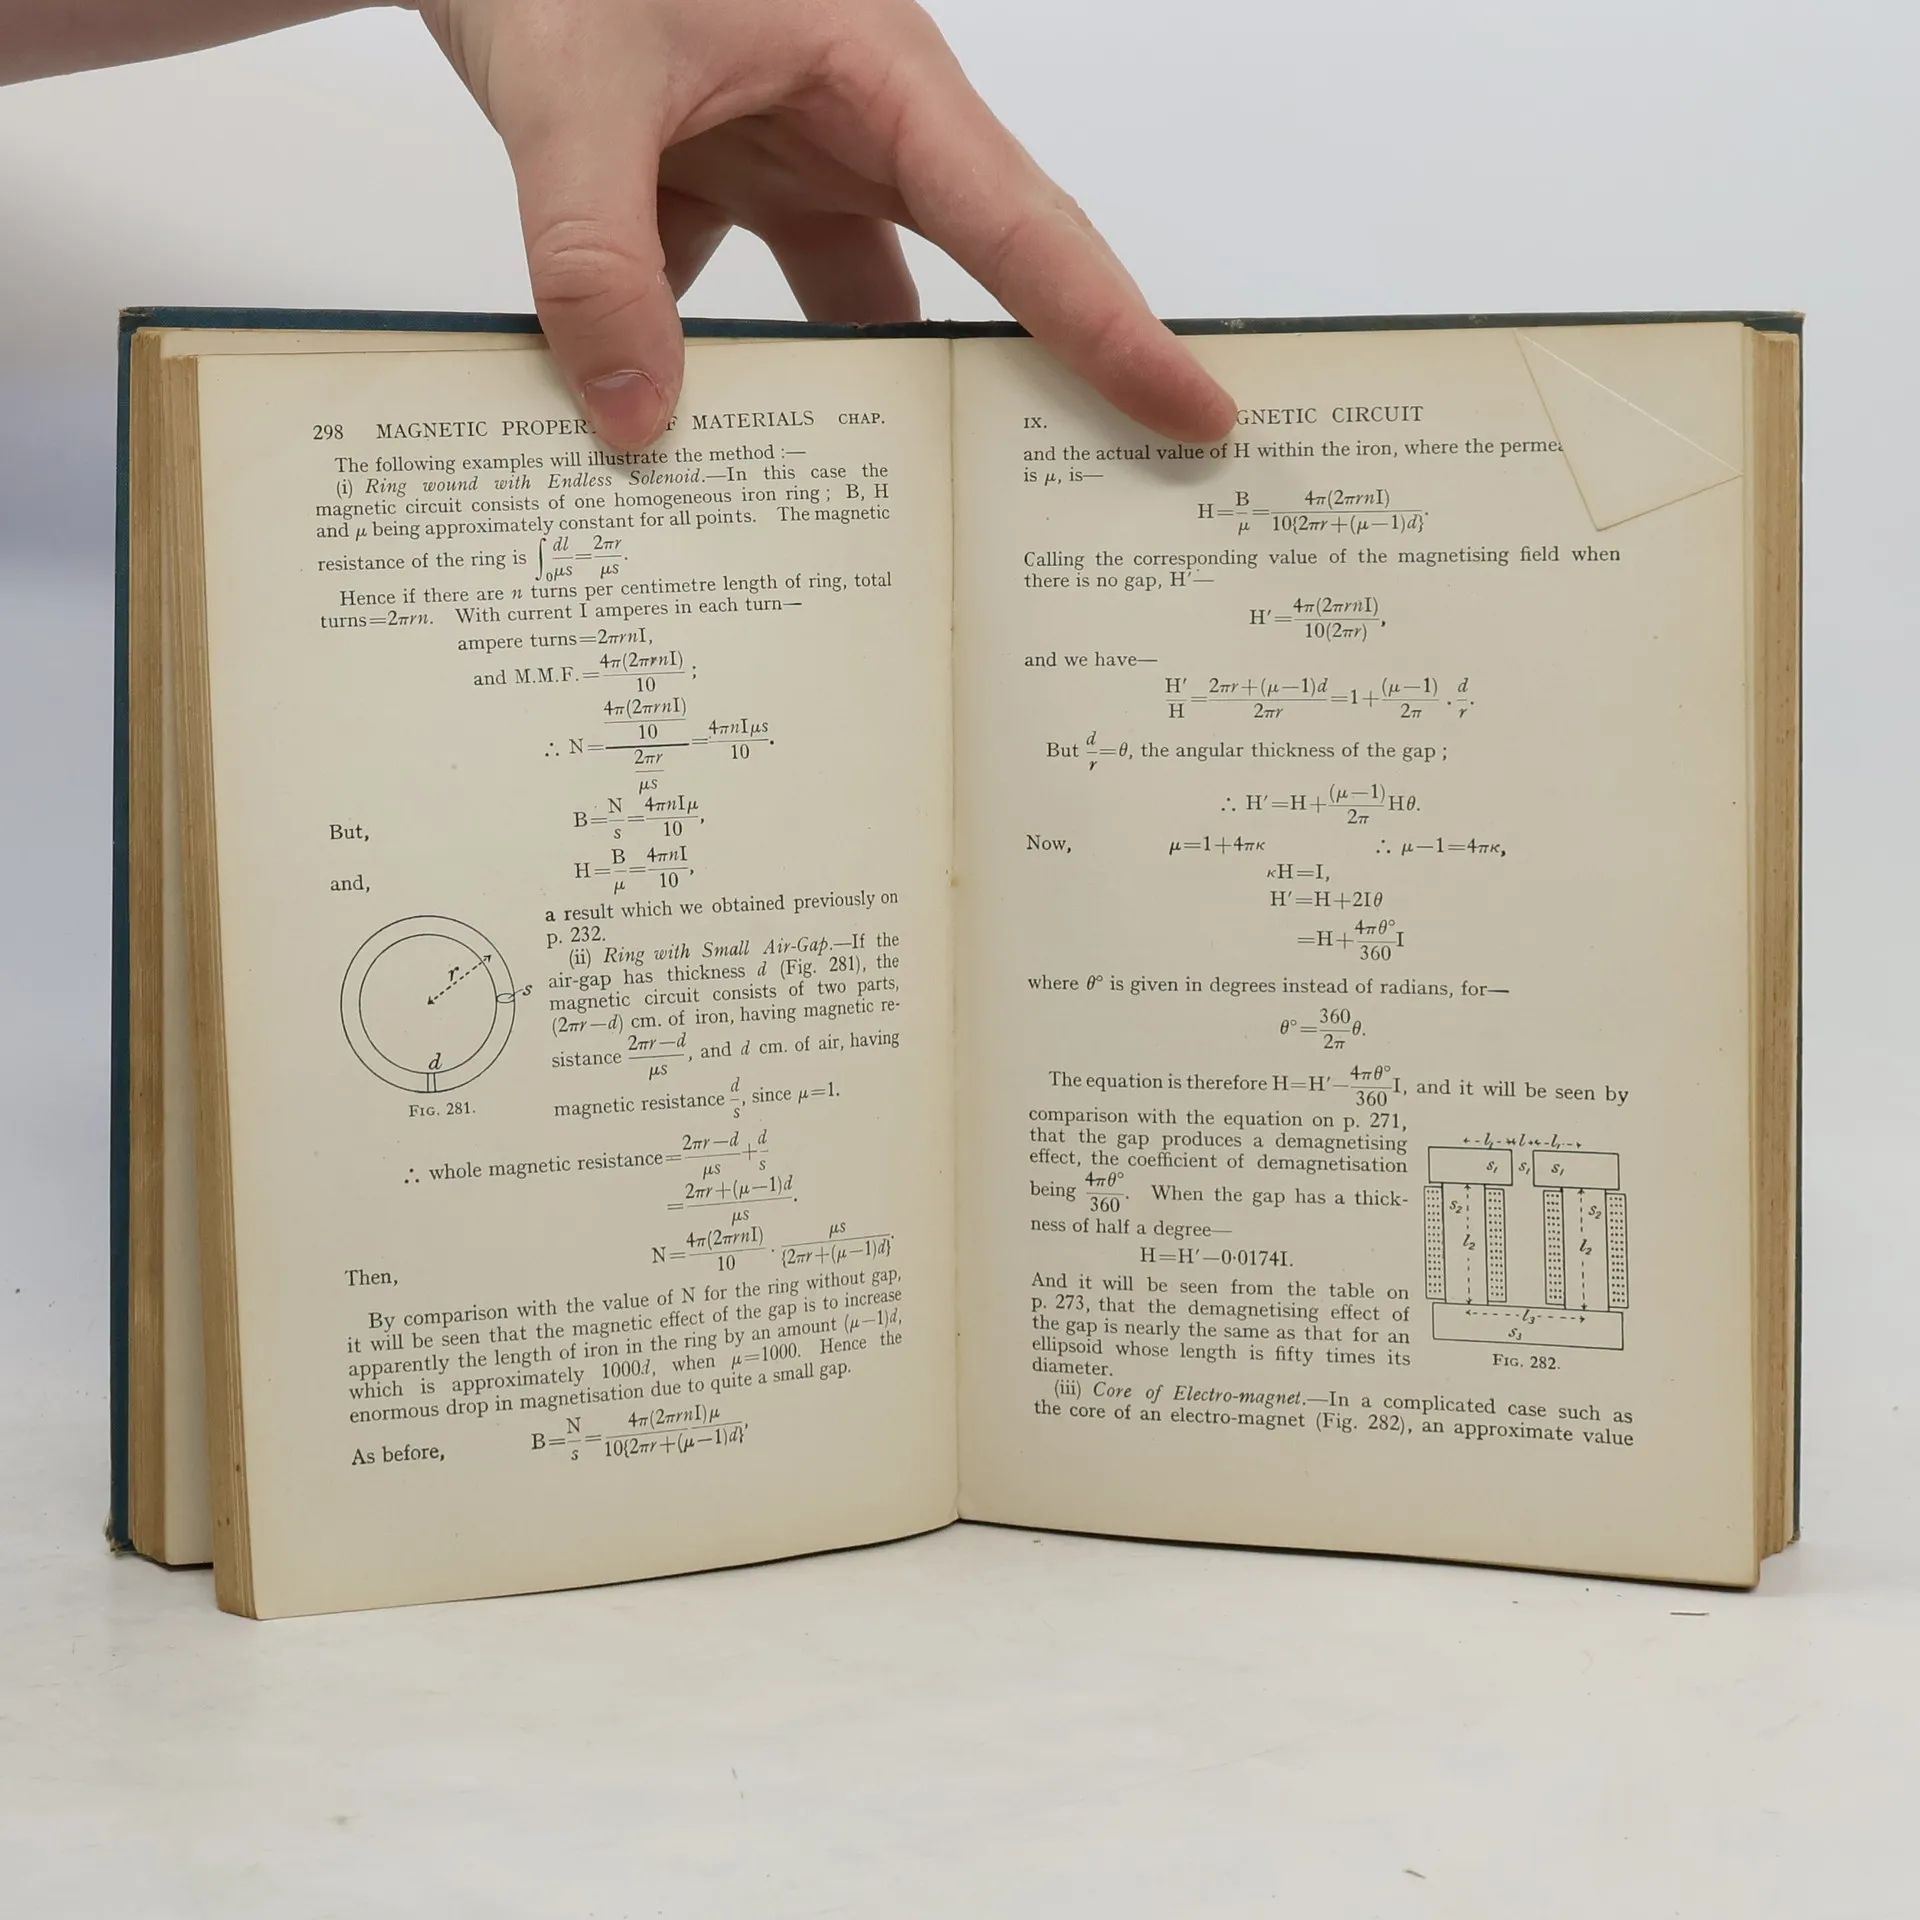 298 MAGNETIC MATERIALS CHAP.
The following examples will illustrate the method :—
(i) Ring wound with Endless Solenoid.—In this case the
magnetic circuit consists of one homogeneous iron ring ; B, H
and μ being approximately constant for all points. The magnetic
resistance of the ring is ∫₀ dl/μs = 2πr/μs.
Hence if there are n turns per centimetre length of ring, total
turns=2πrn. With current I amperes in each turn—
ampere turns=2πrnI,
and M.M.F.= 4π(2πrnI)/10 ;
∴ N= (4π(2πrnI)/10)/(2πr/μs) = 4πnIμs/10.
But, B= N/s = 4πnIμ/10,
and, H= B/μ = 4πnI/10,
a result which we obtained previously on
p. 232.
(ii) Ring with Small Air-Gap.—If the
air-gap has thickness d (Fig. 281), the
magnetic circuit consists of two parts,
(2πr—d) cm. of iron, having magnetic re-
sistance (2πr—d)/μs, and d cm. of air, having
magnetic resistance d/s, since μ=1.
r
s
d
FIG. 281.
∴ whole magnetic resistance= (2πr—d)/μs + d/s
= (2πr+(μ—1)d)/μs.
Then, N= 4π(2πrnI)/10 · μs/{2πr+(μ—1)d}.
By comparison with the value of N for the ring without gap,
it will be seen that the magnetic effect of the gap is to increase
apparently the length of iron in the ring by an amount (μ—1)d,
which is approximately 1000d, when μ=1000. Hence the
enormous drop in magnetisation due to quite a small gap.
As before, B= N/s = 4π(2πrnI)μ/10{2πr+(μ—1)d},
IX. CIRCUIT
and the actual value of H within the iron, where the
is μ, is—
H= B/μ = 4π(2πrnI)/10{2πr+(μ—1)d}.
Calling the corresponding value of the magnetising field when
there is no gap, H′—
H′= 4π(2πrnI)/10(2πr),
and we have—
H′/H = (2πr+(μ—1)d)/2πr =1+ (μ—1)/2π · d/r.
But d/r=θ, the angular thickness of the gap ;
∴ H′=H+ (μ—1)/2π Hθ.
Now, μ=1+4πκ ∴ μ—1=4πκ,
κH=I,
H′=H+2Iθ
=H+ 4πθ°/360 I
where θ° is given in degrees instead of radians, for—
θ°= 360/2π θ.
The equation is therefore H=H′— 4πθ°/360 I, and it will be seen by
comparison with the equation on p. 271,
that the gap produces a demagnetising
effect, the coefficient of demagnetisation
being 4πθ°/360. When the gap has a thick-
ness of half a degree—
H=H′—0·0174I.
And it will be seen from the table on
p. 273, that the demagnetising effect of
the gap is nearly the same as that for an
ellipsoid whose length is fifty times its
diameter.
l₁ l l₁
s₁ s₁ s₁
s₂ s₂
l₂ l₂
l₃
s₃
FIG. 282.
(iii) Core of Electro-magnet.—In a complicated case such as
the core of an electro-magnet (Fig. 282), an approximate value